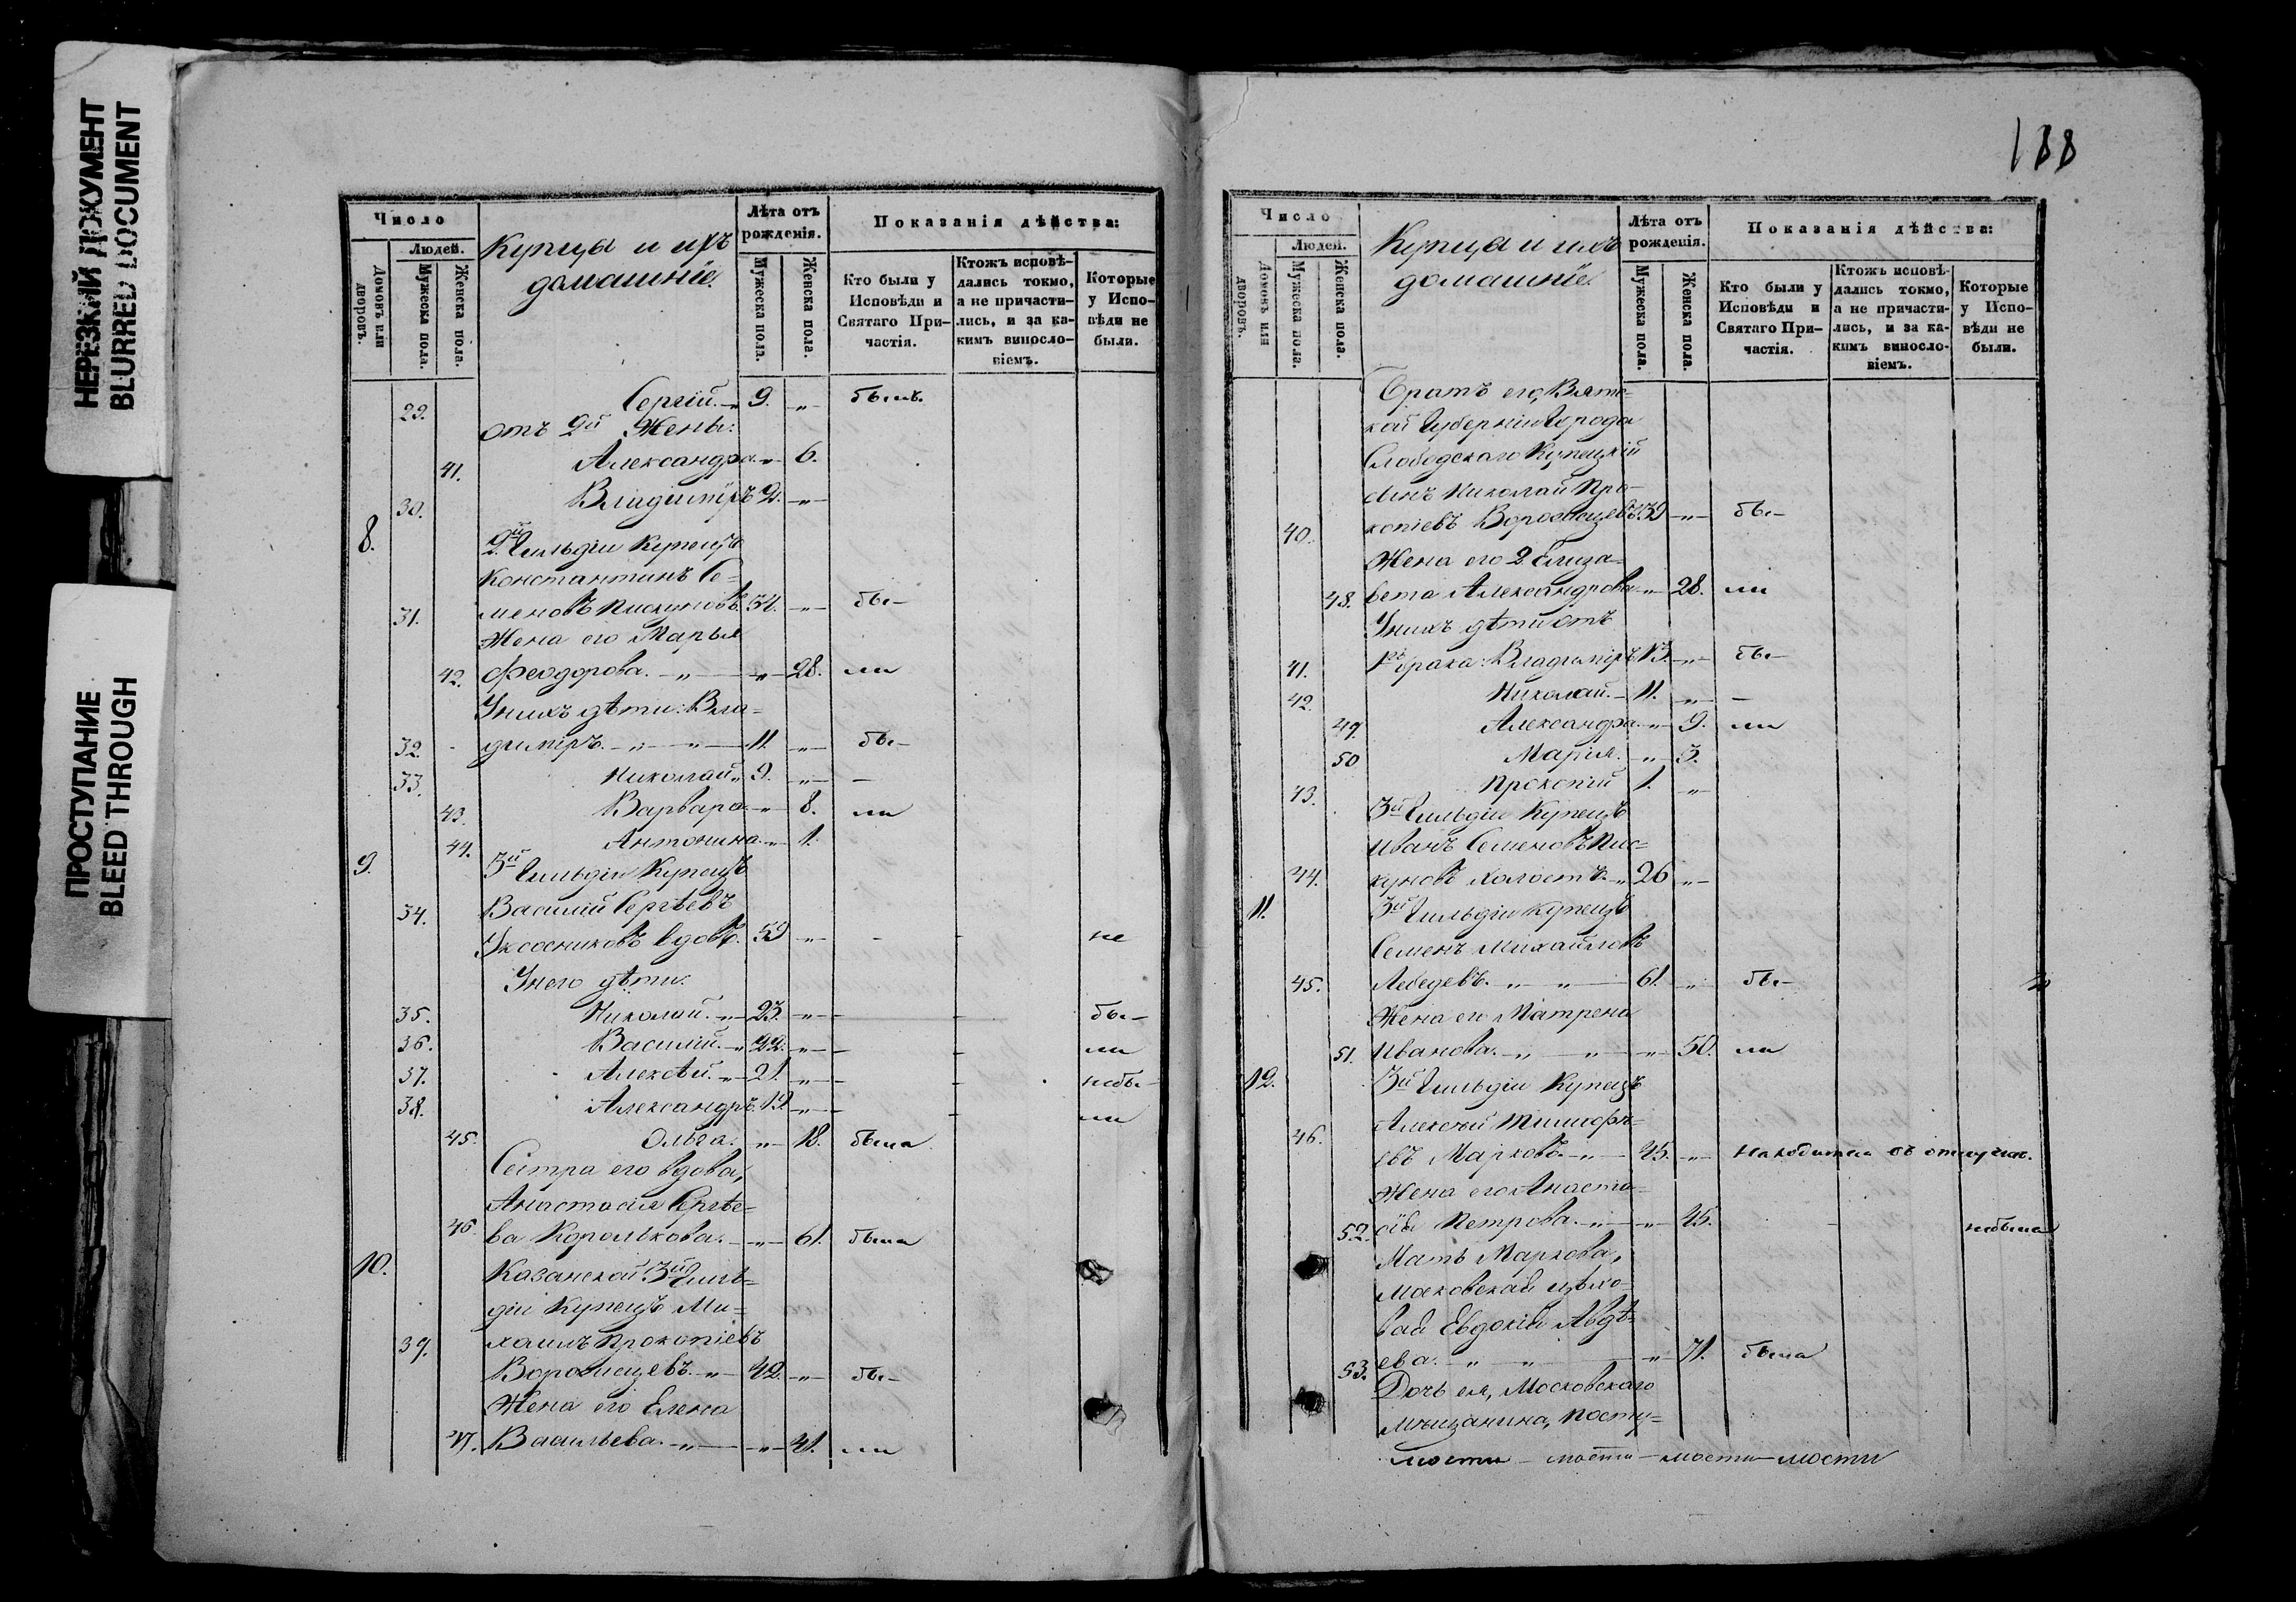 НЕРЕЗКИЙ ДОКУМЕНТ
BLURRED DOCUMENT
ПРОСТУПАНИЕ
BLEED THROUGH
Число
Людей.
Домовъ или дворовъ.
Мужеска пола.
Женска пола.
Купцы и ихъ
домашніе.
Лѣта отъ рожденія.
Мужеска пола.
Женска пола.
Показанія дѣйства:
Кто были у Исповѣди и Святаго Причастія.
Ктожъ исповѣдались токмо, а не причастились, и за какимъ винословіемъ.
Которые у Исповѣди не были.
29. Сергій. „ 9. „ былъ.
отъ 2й Жены:
41. Александра. „ 6.
30. Владиміръ 2. „
8. 2й Гильдіи Купецъ
Константинъ Се=
31. меновъ Пискуновъ. 34. „ бы–
Жена его Марья
42. Феодорова. „ „ 28. ли
У нихъ дѣти: Вла=
32. диміръ. „ „ 11. „ бы–
33. Николай „ 9. „ –
43. Варвара. „ 8. ли
44. Антонина. „ 1.
9. 3й Гильдіи Купецъ
34. Василій Сергѣевъ
Уксусниковъ вдовъ. 59 „ – – не
У него дѣти:
35. Николай. „ 23. „ – – бы–
36. Василій. „ 22. „ – – ли
37. Алексѣй. „ 21. „ – – небы–
38. Александръ. 19. „ – – ли
45. Ольга. „ 18. была
Сестра его вдова,
Анастасія Сергѣе=
46. ва Королькова. „ 61. была
10. Казанской 3й Гиль=
діи Купецъ Ми=
39. хаилъ Прокопіевъ
Воро „ 42. „ бы–
Жена его Елена
47. Васильева. „ „ 41. ли
188
Число
Людей.
Домовъ или дворовъ.
Мужеска пола.
Женска пола.
Купцы и ихъ
домашніе.
Лѣта отъ рожденія.
Мужеска пола.
Женска пола.
Показанія дѣйства:
Кто были у Исповѣди и Святаго Причастія.
Ктожъ исповѣдались токмо, а не причастились, и за какимъ винословіемъ.
Которые у Исповѣди не были.
Братъ его, Вятс=
кой Губерніи Города
Слободскаго Купецкій
сынъ Николай Про=
40. копіевъ 39 „ бы–
Жена его 2. Елиза=
48. вета Александрова „ 28. ли
У нихъ дѣти отъ
41. 1го брака: Владиміръ 13. „ бы–
42. Николай. 11. „ –
49. Александра. „ 9. ли
50 Марія. „ 3.
43. Прокопій 1. „
3й Гильдіи Купецъ
Иванъ Семеновъ Пис=
44. куновъ холостъ. „ 26 „
11. 3й Гильдіи Купецъ
Семенъ Михайловъ
45. Лебедевъ. „ „ 61. „ бы–
Жена его Матрена
51. Иванова. „ „ „ 50. ли
12. 3й Гильдіи Купецъ
46. Алексѣй Тимофѣ=
евъ Марковъ. „ 45. „ Находится въ отлучкѣ.
Жена его Анаста=
52. сія Петрова. „ „ 45. – небыла
Мать Маркова,
Московская цѣхо=
вая Евдокія Авдѣ=
53. ева. „ „ „ 71. была
Дочь ея, Московскаго
Мѣщанина, Посту=